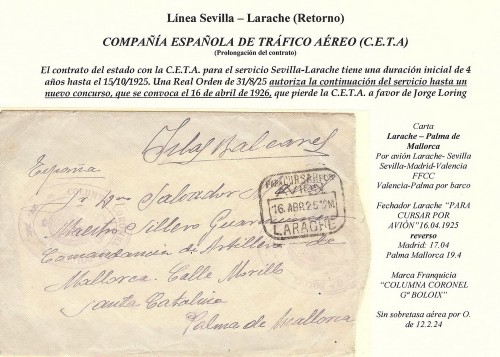 Línea Sevilla – Larache (Retorno)
COMPAÑÍA ESPAÑOLA DE TRÁFICO AÉREO (C.E.T.A)
(Prolongación del contrato)
El contrato del estado con la C.E.T.A. para el servicio Sevilla-Larache tiene una duración inicial de 4
años hasta el 15/10/1925. Una Real Orden de 31/8/25 autoriza la continuación del servicio hasta un
nuevo concurso, que se convoca el 16 de abril de 1926, que pierde la C.E.T.A. a favor de Jorge Loring
Islas Baleares
España
Sr Dn Salvador
Maestro Sillero Guarnicionero
Comandancia de Artillería de
Mallorca. Calle Murillo
Santa Catalina
Palma de Mallorca
PARA CURSAR POR
AVION
16. ABR. 25
LARACHE
Carta
Larache – Palma de
Mallorca
Por avión Larache- Sevilla
Sevilla-Madrid-Valencia
FFCC
Valencia-Palma por barco
Fechador Larache "PARA
CURSAR POR
AVIÓN"16.04.1925
reverso
Madrid: 17.04
Palma Mallorca 19.4
Marca Franquicia
"COLUMNA CORONEL
Gª BOLOIX"
Sin sobretasa aérea por O.
de 12.2.24